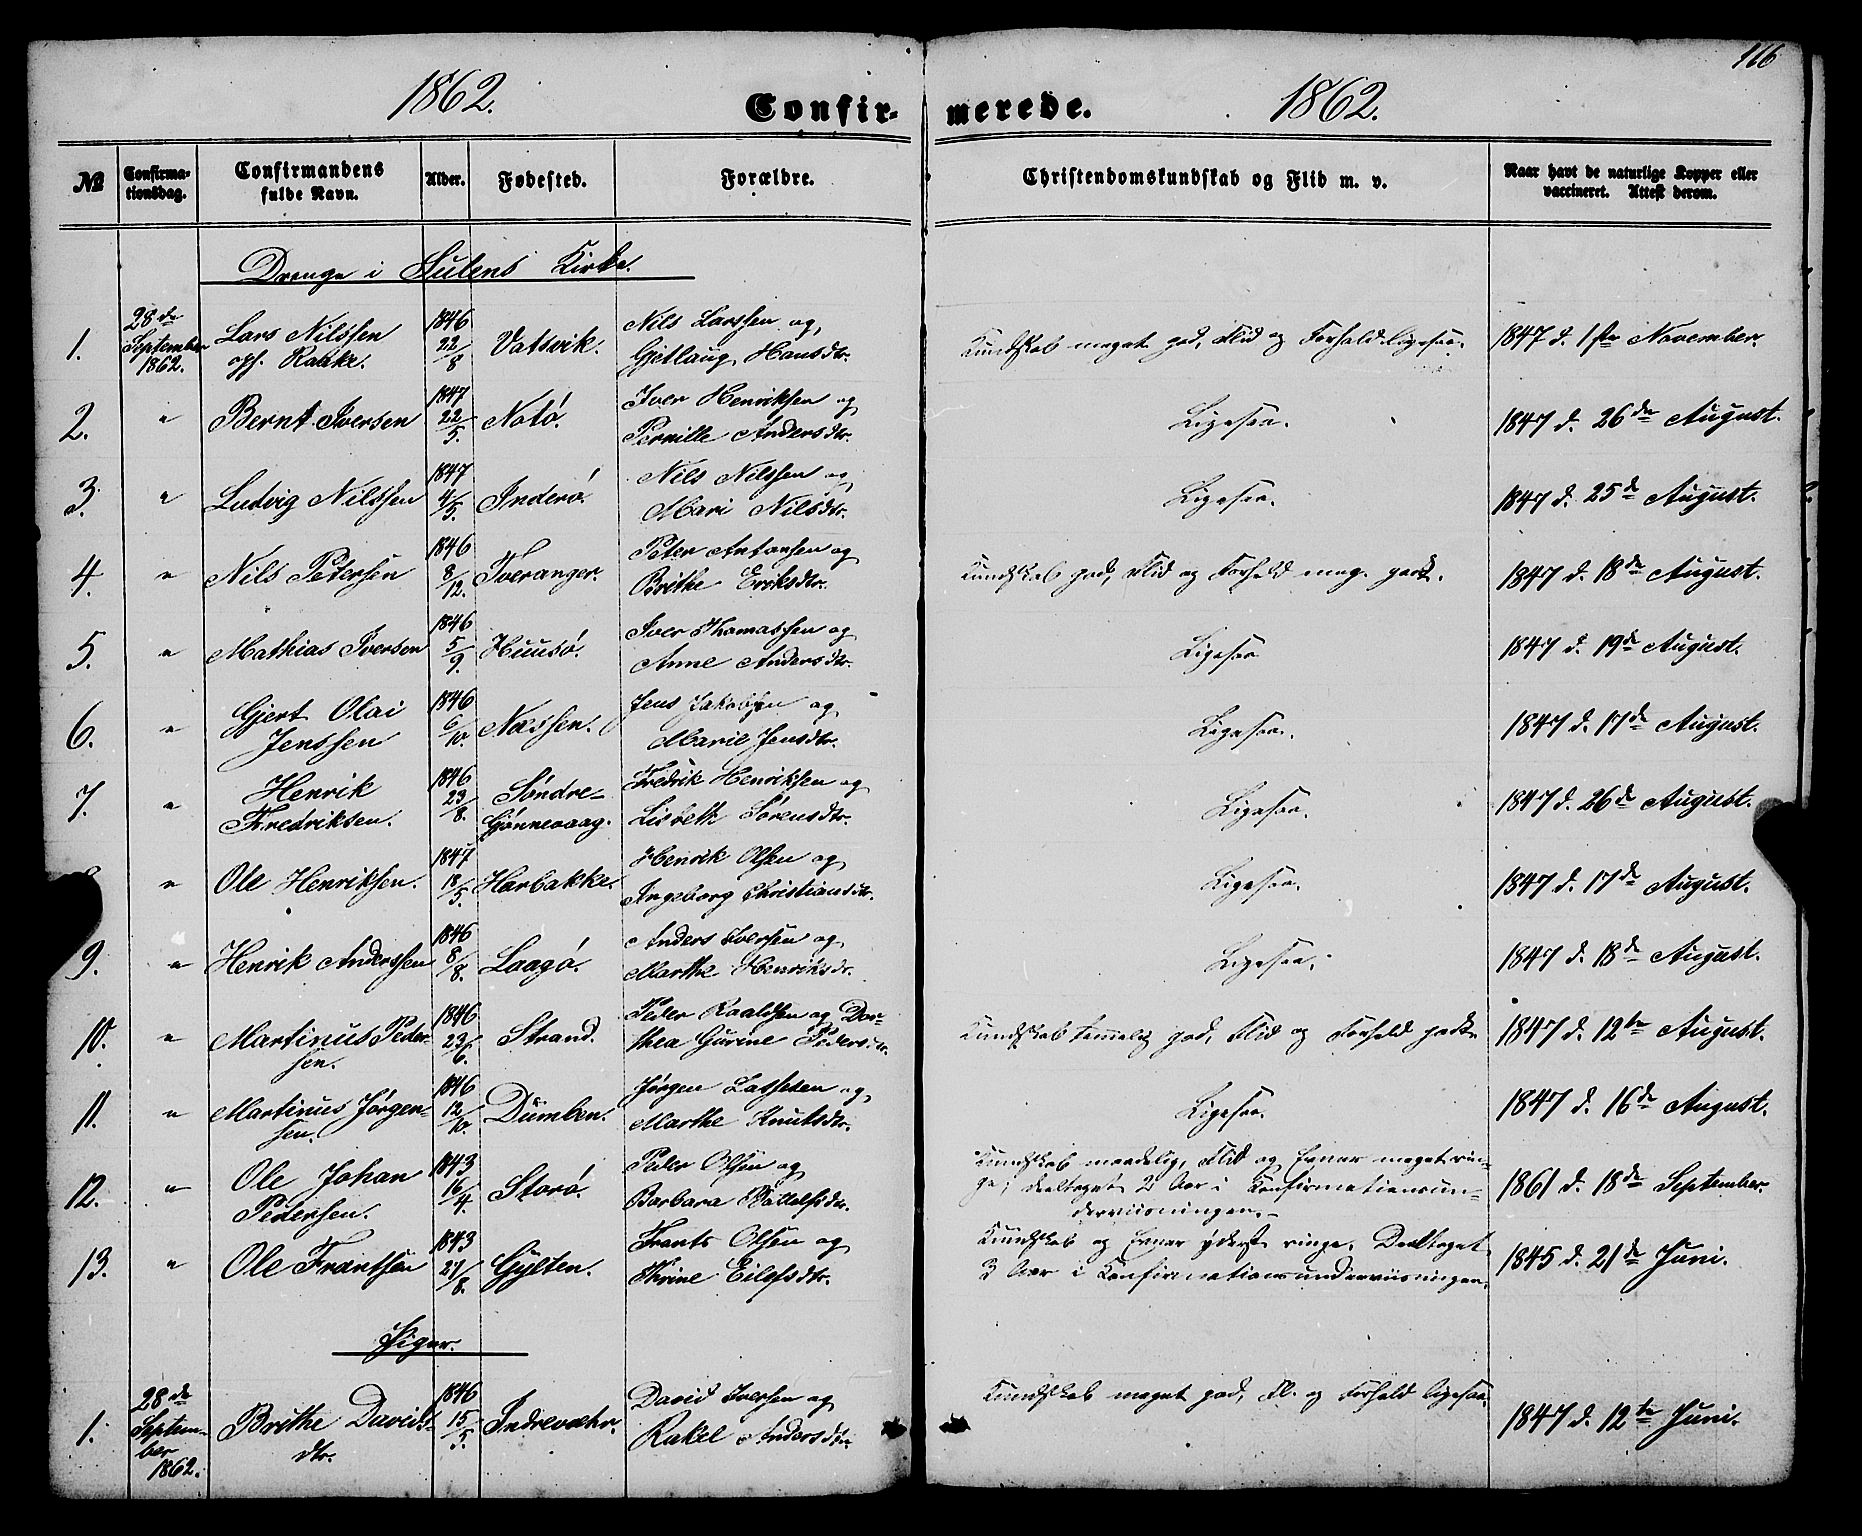 166
1862. Confir- merede. 1862.
No Confirma-tionsdag. Confirmandens fulde Navn. Alder. Fødested. Forældre. Christendomskundskab og Flid m. v. Naar havt de naturlige Kopper eller vaccineret. Attest derom.
Drenge i Sulens Kirke.
1. 28de September 1862. Lars Nilssen opf. Rakke. 1846 22/8 Vatsvik. Nils Larssen og Gjetlaug Hansdtr. Kundskab meget god, Flid og Forhold ligesaa. 1847 d. 1ste November.
2. " Bernt Iversen 1847 22/5. Notø. Iver Henriksen og Pernille Andersdtr. Ligesaa. 1847 d. 26de August.
3. " Ludvig Nilssen 1847 4/5. Inderø. Nils Nilssen og Mari Nilsdtr. Ligesaa. 1847 d. 25de August.
4. " Nils Petersen 1846 8/12. Tveranger. Peter Antonsen og Brithe Eriksdtr. Kundskab god, Flid og Forhold meg. godt. 1847 d. 18de August.
5. " Mathias Iversen 1846 5/9. Huusø. Iver Thomassen og Anne Andersdtr. Ligesaa 1847 d. 19de August.
6. " Gjert Olai Jenssen 1846 6/10. Næssen. Jens Jakobsen og Marie Jensdtr. Ligesaa. 1847 d. 17de August.
7. " Henrik Fredriksen. 1846 23/8. Søndre-Gjønnevaag. Fredrik Henriksen og Lisbeth Sørensdtr. Ligesaa. 1847 d. 26de August.
" Ole Henriksen. 1847 18/5. Harbakke. Henrik Olsen og Ingeborg Christiansdtr. Ligesaa. 1847 d. 17de August.
9. " Henrik Anderssen 1846 8/8. Laagø. Anders Iversen og Marthe Henriksdr. Ligesaa. 1847 d. 18de August.
10. " Martinus Peder-sen. 1846 23/6. Strand. Peder Roaldsen og Dor-thea Gurine Pedersdtr. Kundskab temmelig god, Flid og Forhold godt. 1847 d. 12te August.
11. " Martinus Jørgen-sen. 1846 12/10. Dumben. Jørgen Lassesen og Marthe Knutsdtr. Ligesaa. 1847 d. 16de August.
12. " Ole Johan Pedersen. 1843 16/4. Storø. Peder Olsen og Barbara Battolfsdtr. Kundskab maadelig, Flid og Evner meget rin-ge; deeltaget 2 Aar i Konfirmationsun-derviisningen. 1861 d. 18de September.
13. " Ole Frantsen 1843 27/8. Gylten. Frants Olsen og Thrine Eilefsdtr. Kundskab og Evner yderst ringe. Deeltaget 3 Aar i Konfirmationsunderviisningen. 1845 d. 21de Juni.
Piger.
1. 28de Septem-ber 1862. Brithe Davids-dtr. 1846 15/5. Indrevæhr. David Iversen og Rakel Andersdtr. Kundskab meget god, Fl. og Forhold ligesaa. 1847 d. 12te Juni.